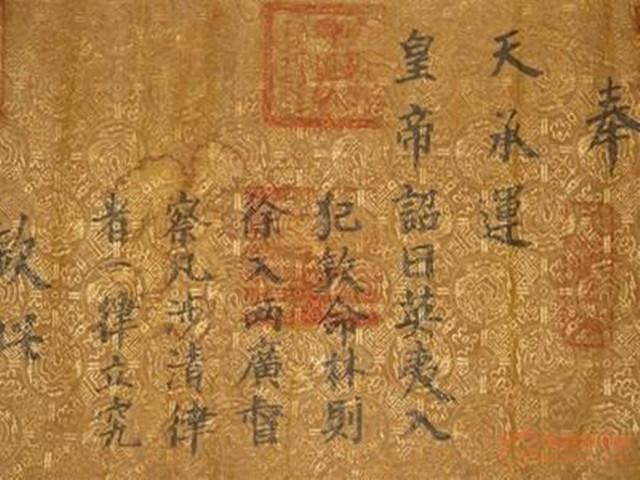 奉
天承運
皇帝詔曰英夷入
犯欽命林則
徐入兩廣督
察凡涉清律
者一律立究
欽